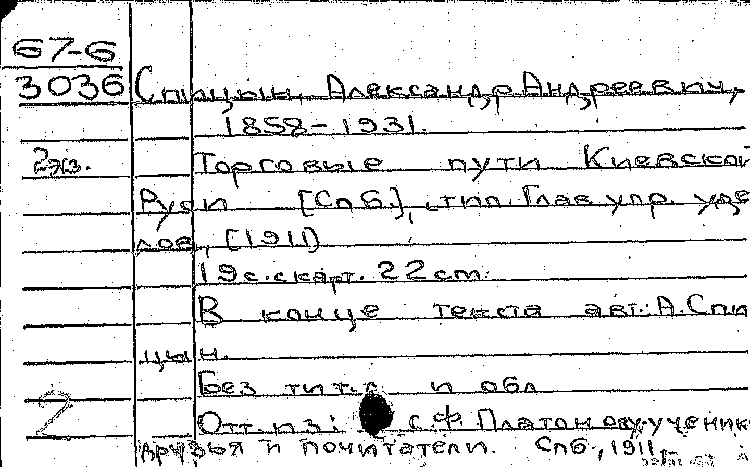 67-6
3036 Спицын, Александр Андреевич,
1858-1931.
2 экз. Торговые пути Киевской
Руси [Спб.], тип. Глав. упр. уде
лов, [1911]
19 с. с карт. 22 см.
В конце текста авт.: А. Спи
цын.
Без тит. л. и обл
2 Отт. из: С.Ф. Платонову ученики
друзья и почитатели. Спб., 1911.